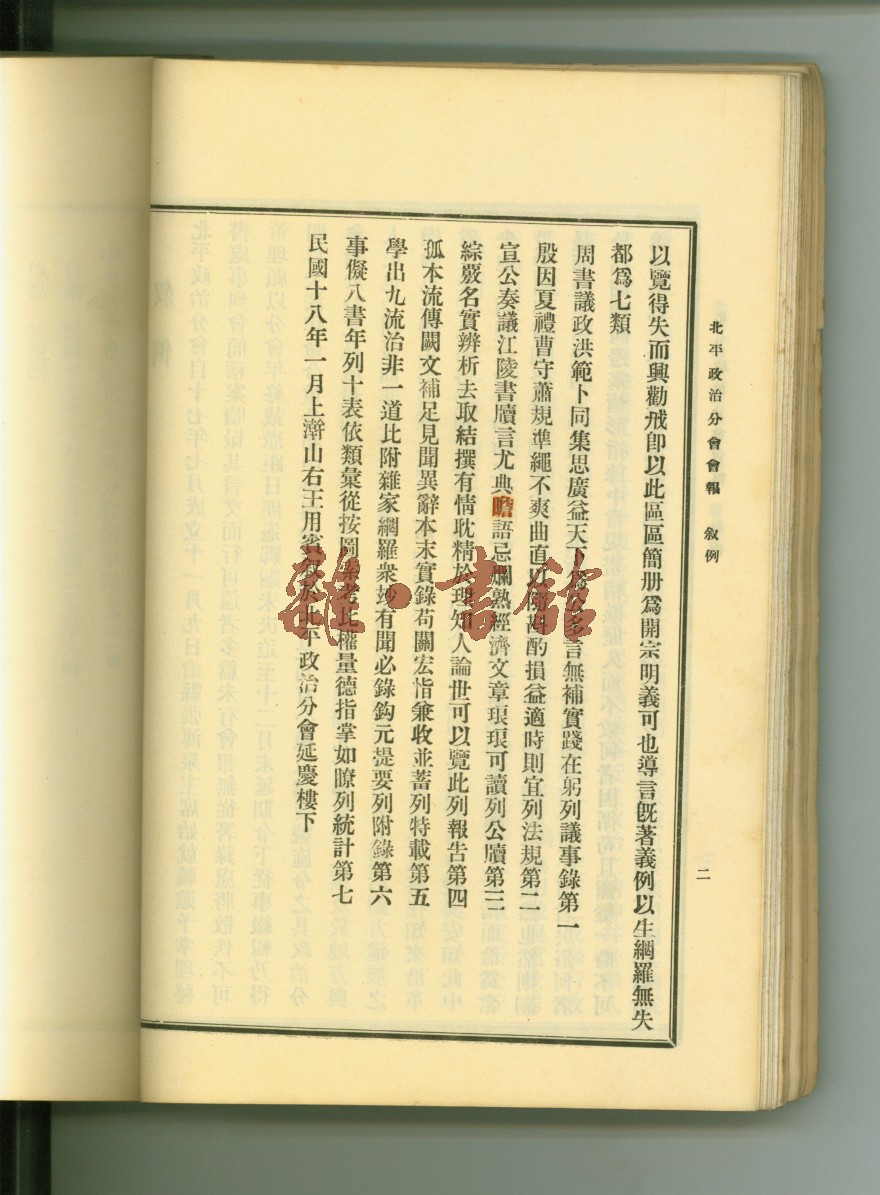 北平政治分會會報 敘例 二
以覽得失而興勸戒卽以此區區簡册爲開宗明義可也導言旣著義例以生綱羅無失
都爲七類
周書議政洪範卜同集思廣益天下爲公多言無補實踐在躬列議事錄第一
殷因夏禮曹守蕭規準繩不爽曲直以隨斟酌損益適時則宜列法規第二
宣公奏議江陵書牘言尤典瞻語忌爛熟經濟文章琅琅可讀列公牘第三
綜覈名實辨析去取結撰有情耽精於理知人論世可以覽此列報告第四
孤本流傳闕文補足見聞異辭本末實錄苟關宏恉兼收並蓄列特載第五
學出九流治非一道比附雜家綱羅衆抄有聞必錄鈎元提要列附錄第六
事儗八書年列十表依類彙從按圖索考比權量德指掌如瞭列統計第七
民國十八年一月上澣山右王用賓敘於北平政治分會延慶樓下
雜·書館